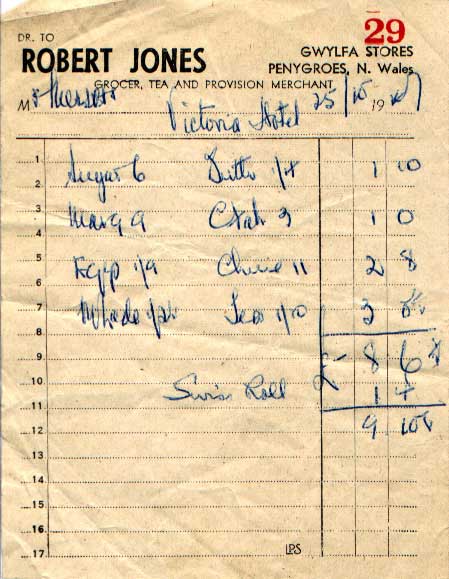 29
DR. TO
ROBERT JONES
GWYLFA STORES
PENYGROES, N. Wales
GROCER, TEA AND PROVISION MERCHANT
M
Victoria Hotel 25/10 19
1 Sugar 6 Butter 1/4 1 10
2
3 Marg 9 3 1 0
4
5 Eggs 1/9 Cheese 11 2 8
6
7 Teas 1/10 3
8
9 £ 8 6
10 Swiss Roll 1 4
11
12 9
13
14
15
16
17 LPS